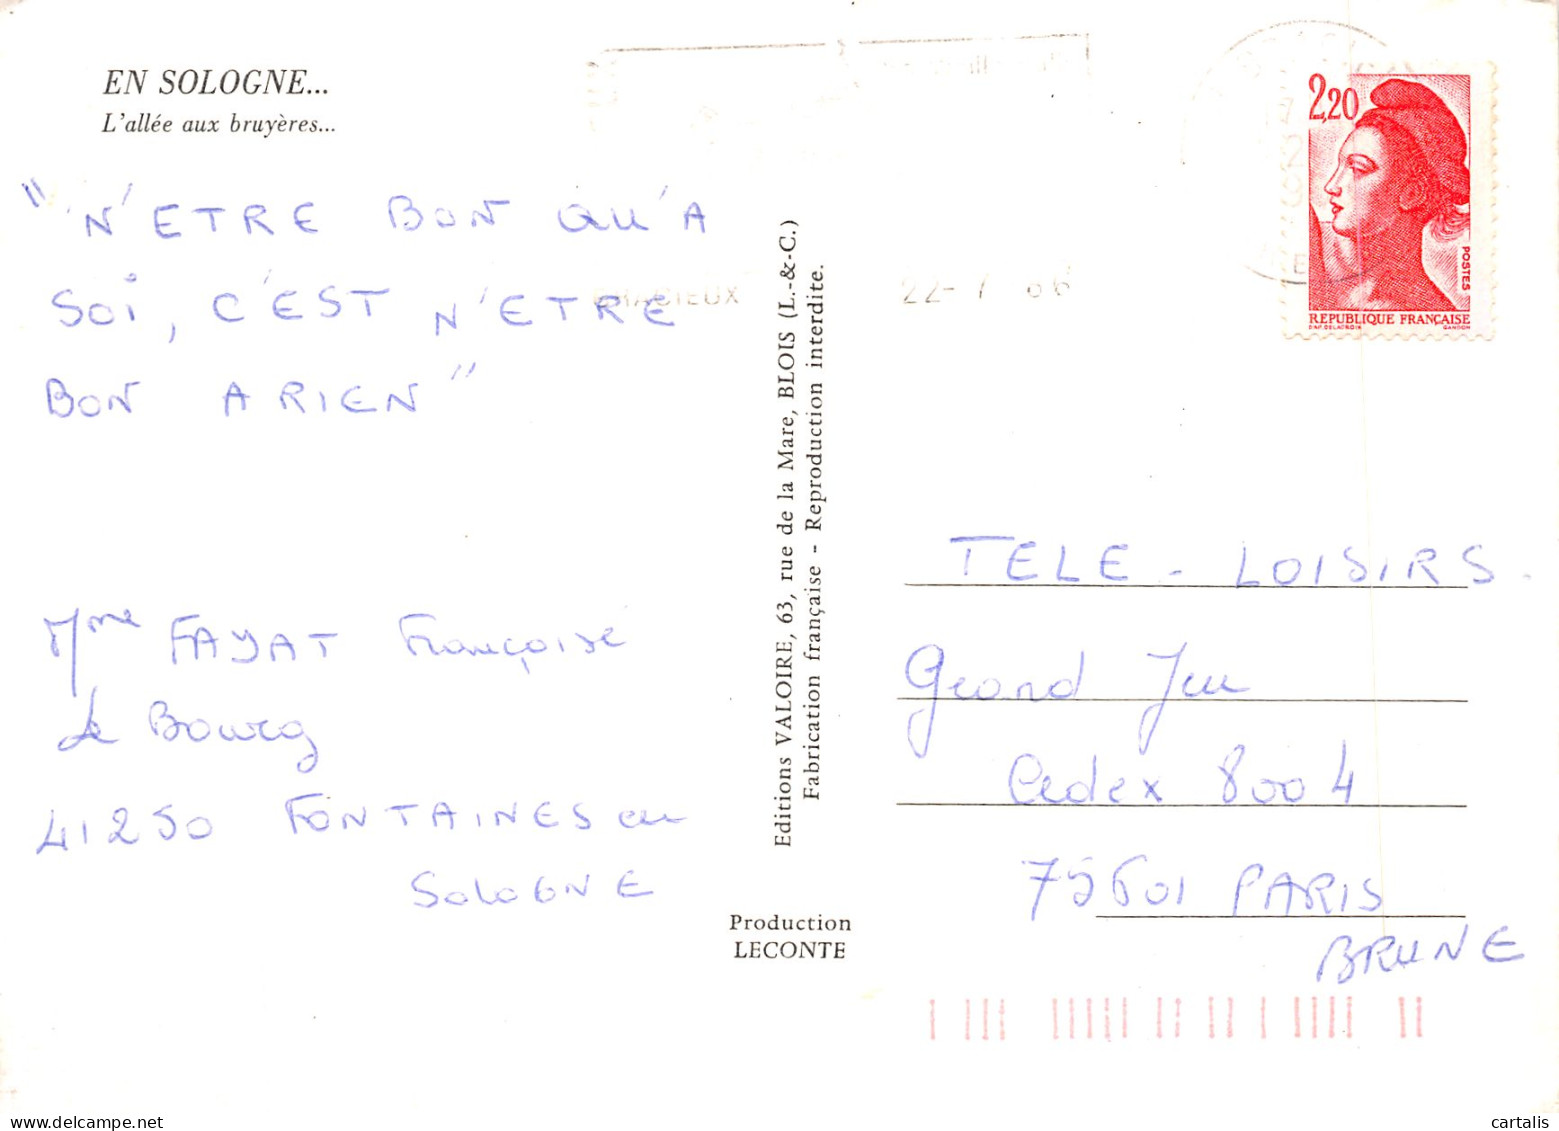 EN SOLOGNE...
L'allée aux bruyères...
"N'ETRE BON QU'A
SOI, C'EST N'ETRE
BON A RIEN"
Mme FAYAT Françoise
Le Bourg
41250 FONTAINES en
SOLOGNE
Editions VALOIRE, 63, rue de la Mare, BLOIS (L.-&-C.)
Fabrication française - Reproduction interdite.
Production
LECONTE
22-7
2,20
POSTES
REPUBLIQUE FRANÇAISE
D'AP. DELACROIX GANDON
TELE - LOISIRS
Grand Jeu
Cedex 8004
75601 PARIS
BRUNE
cartalis